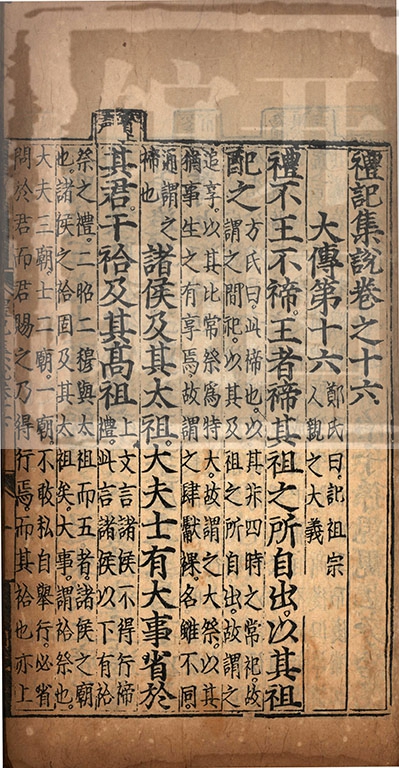 禮記集說卷之十六
大傳第十六
鄭氏曰。記祖宗
人親之大義
禮不王不禘。王者禘其祖之所自出。以其祖
配之
方氏曰。此禘也。以其非四時之常祀。故
謂之間祀。以其及祖之所自出。故謂之
追享。以其比常祭爲特大。故謂之大祭。以其
猶事生之有享焉。故謂之肆獻祼。名雖不同。
通謂之
禘也
諸侯及其太祖。大夫士有大事省於
其君。干祫及其高祖
上文言諸侯不得行禘
禮。此言諸侯以下有祫
祭之禮。二昭二穆與太祖而五者。諸侯之廟
也。諸侯之祫固及其太祖矣。大事。謂祫祭也。
大夫三廟。士二廟。一廟。不敢私自舉行。必省
問於君。而君賜之。乃得行焉。而其祫也。亦上